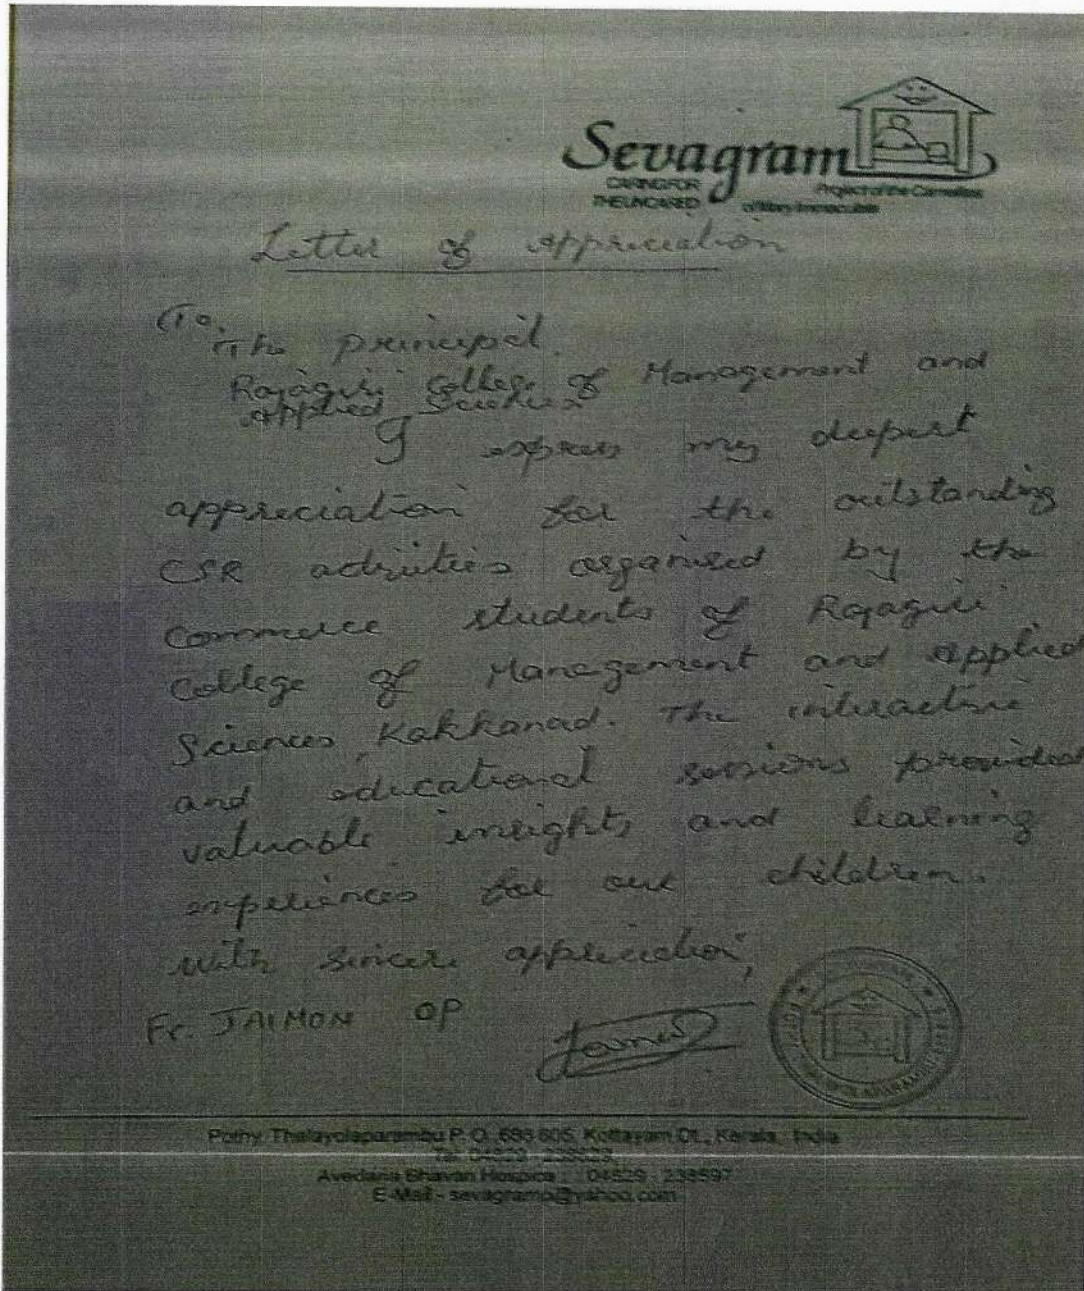 Sevagram
CARING FOR
THE UNCARED
Project of the Carmelites
of Mary Immaculate
Letter of Appriciation
To,
The principal
Rajagiri College of Management and
Applied Sciences
I express my deepest
appreciation for the outstanding
CSR activities organised by the
Commerce students of Rajagiri
College of Management and Applied
Sciences, Kakkanad. The interactive
and educational sessions provided
valuable insights and learning
experiences for our children.
with sincere appreciation,
Fr. JAIMON OP
Pothy, Thalayolaparambu P. O. 686 605, Kottayam Dt., Kerala, India
Tel: 04829
Avedana Bhavan Hospice : 04829 - 238597
E-Mail - sevagramp@yahoo.com